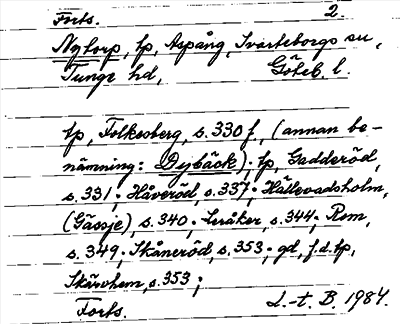 Forts. 2.
Nytorp, tp, Aspång, Svarteborgs sn,
Tunge hd, Göteb. l.
tp, Folkesberg, s. 330 f, (annan be-
nämning: Dybäck); tp, Gadderöd,
s. 331; Håveröd, s. 337; Hällevadsholm,
(Gässje), s. 340; Leråker, s. 344; Rom,
s. 349; Skåneröd, s. 353; gd, f.d. tp,
Skärvhem, s. 353;
Forts. L.-t. B. 1984.